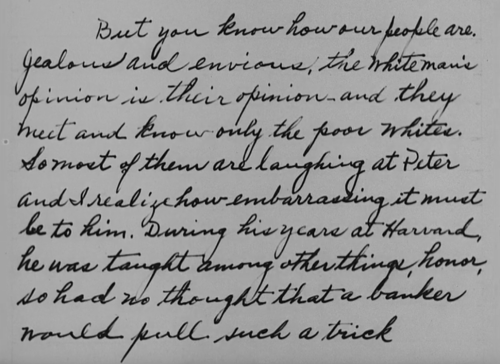 But you know how our people are.
Jealous and envious, the white man's
opinion is their opinion - and they
meet and know only the poor whites.
So most of them are laughing at Peter
and I realize how embarrassing it must
be to him. During his years at Harvard,
he was taught among other things, honor,
so had no thought that a banker
would pull such a trick